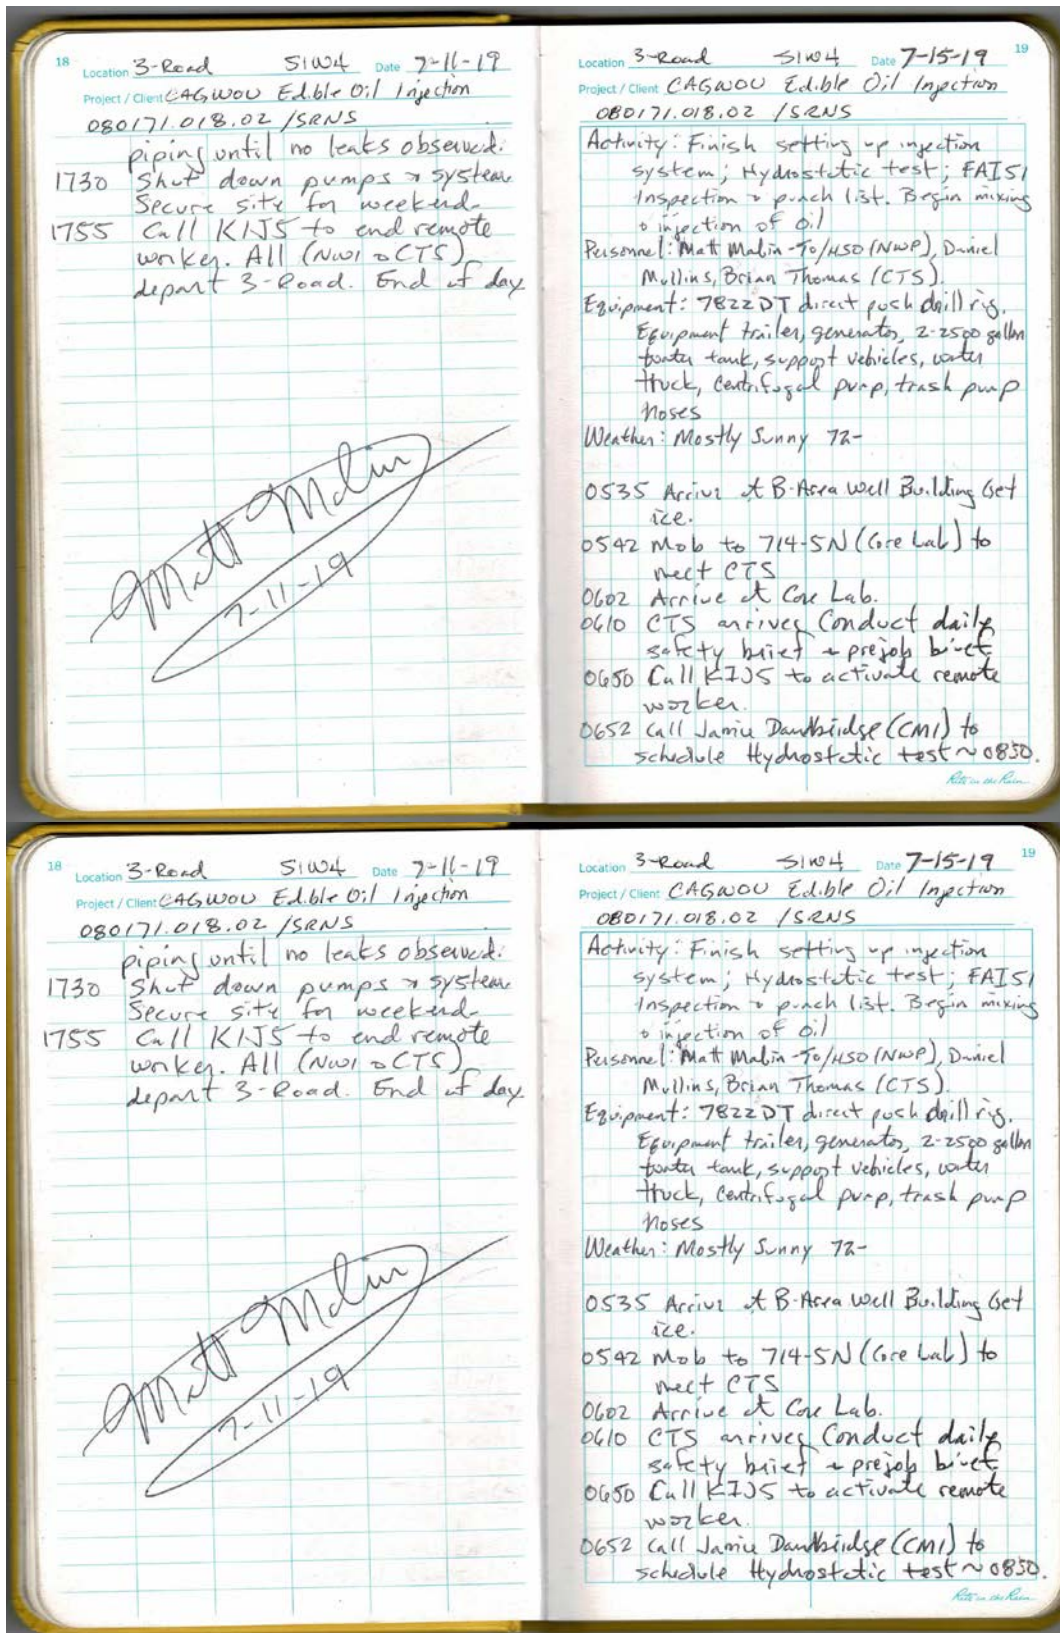 18
Location 3-Road SIW4 Date 7-11-19
Project / Client CAGWOU Edible Oil Injection
080171.018.02 /SRNS
piping until no leaks observed.
1730 Shut down pumps & system
Secure site for weekend.
1755 Call KIJ5 to end remote
worker. All (NWI & CTS)
depart 3-Road. End of day.
Matt Malin
7-11-19
19
Location 3-Road SIW4 Date 7-15-19
Project / Client CAGWOU Edible Oil Injection
080171.018.02 /SRNS
Activity: Finish setting up injection
system; Hydrostatic test; FAISI
Inspection & punch list. Begin mixing
& injection of oil
Personnel: Matt Malin -TO/HSO (NWP), Daniel
Mullins, Brian Thomas (CTS).
Equipment: 7822DT direct push drill rig,
Equipment trailer, generator, 2-2500 gallon
water tank, support vehicles, water
truck, Centrifugal pump, trash pump
hoses
Weather: Mostly Sunny 72-
0535 Arrive at B-Area Well Building Get
ice.
0542 Mob to 714-5N (Core Lab) to
meet CTS
0602 Arrive at Core Lab.
0610 CTS arrives Conduct daily
safety brief & prejob brief
0650 Call KIJ5 to activate remote
worker.
0652 Call Jamie Dandbridge (CMI) to
schedule Hydrostatic test ~ 0830.
Rite in the Rain
18
Location 3-Road SIW4 Date 7-11-19
Project / Client CAGWOU Edible Oil Injection
080171.018.02 /SRNS
piping until no leaks observed.
1730 Shut down pumps & system
Secure site for weekend.
1755 Call KIJ5 to end remote
worker. All (NWI & CTS)
depart 3-Road. End of day.
Matt Malin
7-11-19
19
Location 3-Road SIW4 Date 7-15-19
Project / Client CAGWOU Edible Oil Injection
080171.018.02 /SRNS
Activity: Finish setting up injection
system; Hydrostatic test; FAISI
Inspection & punch list. Begin mixing
& injection of oil
Personnel: Matt Malin -TO/HSO (NWP), Daniel
Mullins, Brian Thomas (CTS).
Equipment: 7822DT direct push drill rig,
Equipment trailer, generator, 2-2500 gallon
water tank, support vehicles, water
truck, Centrifugal pump, trash pump
hoses
Weather: Mostly Sunny 72-
0535 Arrive at B-Area Well Building Get
ice.
0542 Mob to 714-5N (Core Lab) to
meet CTS
0602 Arrive at Core Lab.
0610 CTS arrives Conduct daily
safety brief & prejob brief
0650 Call KIJ5 to activate remote
worker.
0652 Call Jamie Dandbridge (CMI) to
schedule Hydrostatic test ~ 0830.
Rite in the Rain